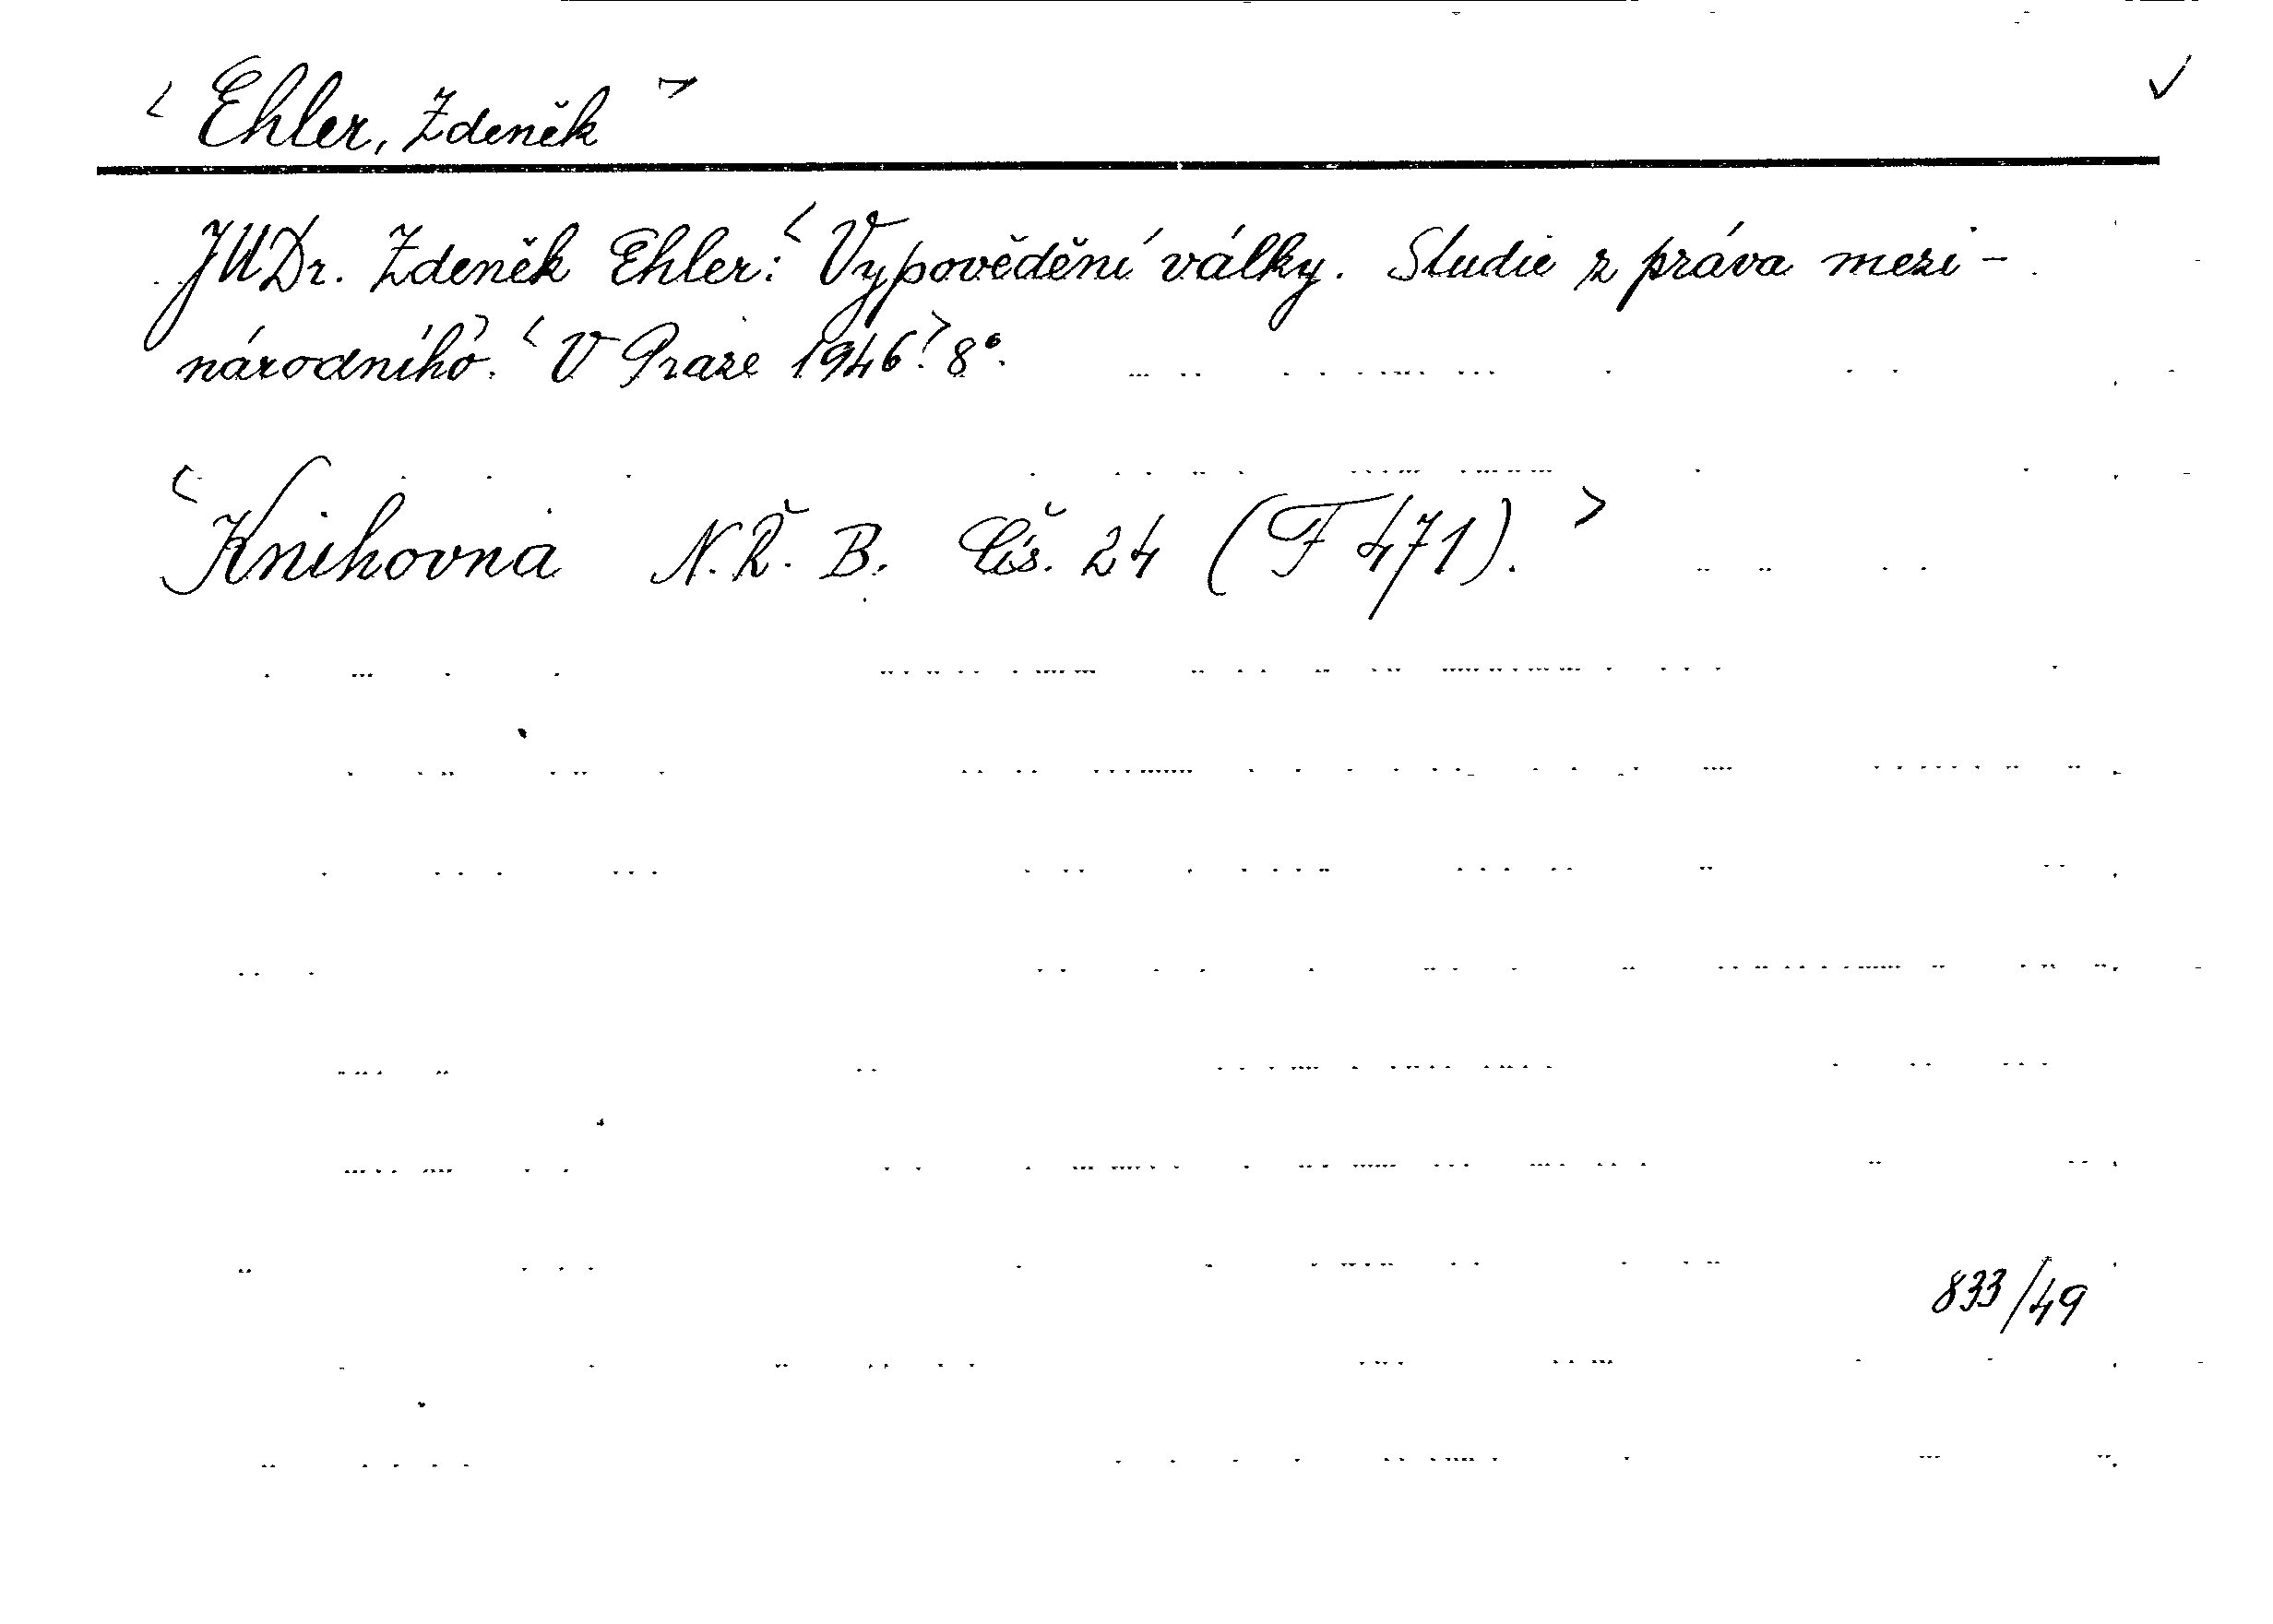 < Ehler, Zdeněk > ✓
JUDr. Zdeněk Ehler: < Vypovědění války. Studie z práva mezi-
národního.> < V Praze 1946.> 8°.
< Knihovna N. Ř. B. Čís. 24 (F 471). >
833/49